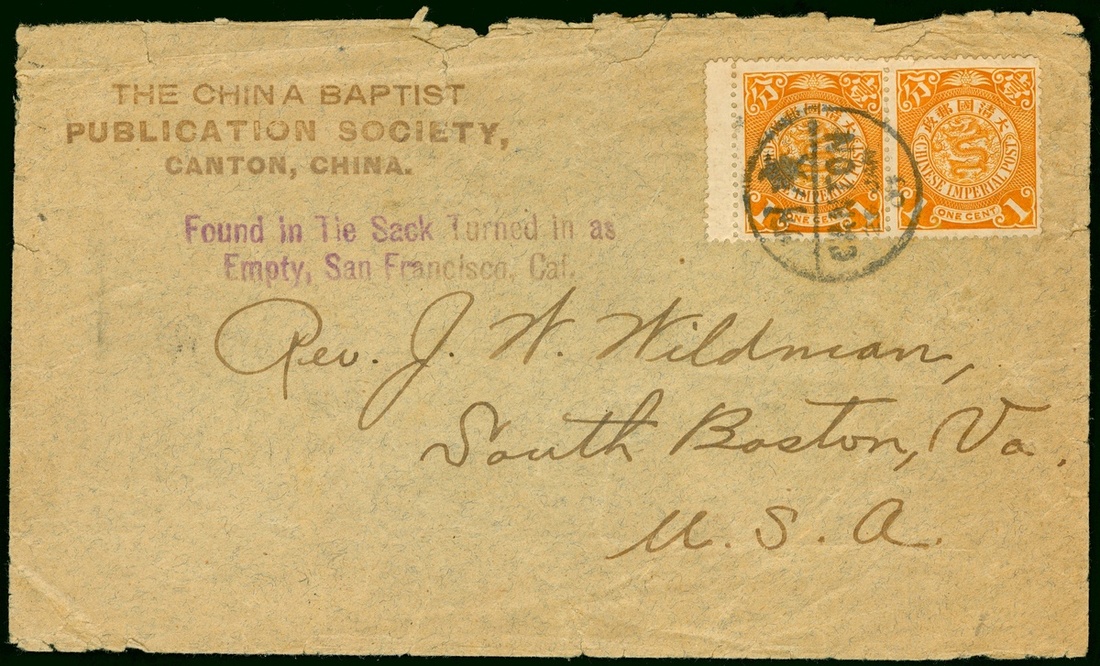 THE CHINA BAPTIST
PUBLICATION SOCIETY,
CANTON, CHINA.
Found in Tie Sack Turned in as
Empty, San Francisco, Cal.
Rev. J. W. Wildman,
South Boston, Va.
U. S. A.
分 壹
大清國郵政
CHINESE IMPERIAL POST
1 ONE CENT 1
分 壹
大清國郵政
CHINESE IMPERIAL POST
1 ONE CENT 1
CANTON